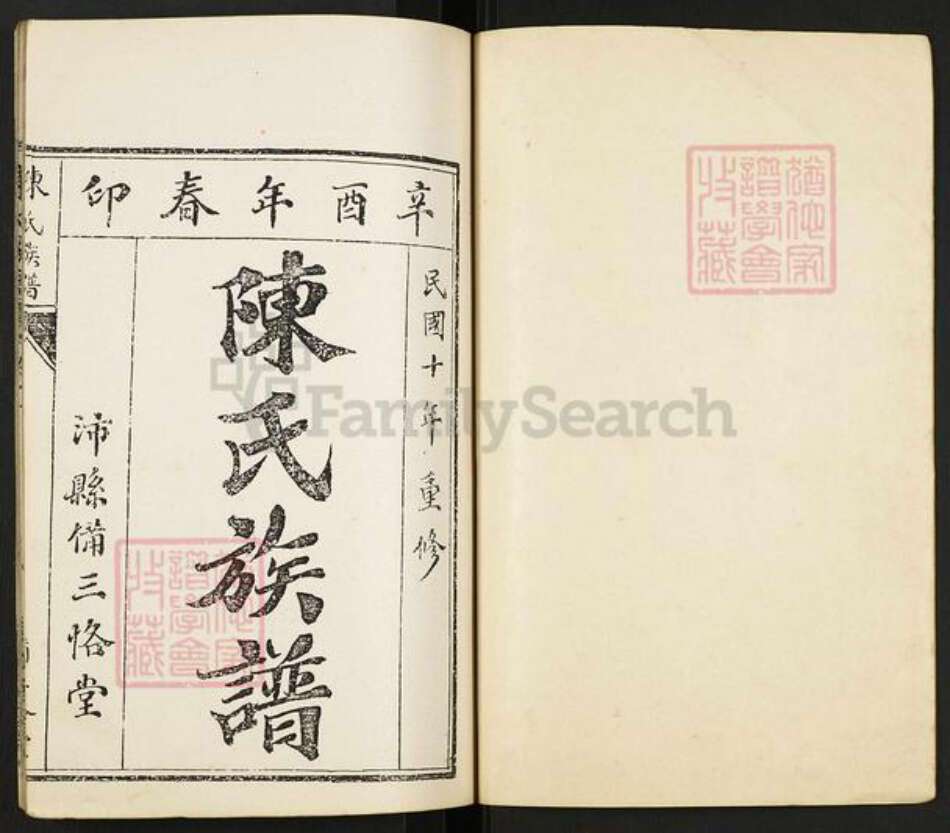 辛酉年春印
民國十年重修
陳氏族譜
沛縣備三恪堂
陳氏族譜
FamilySearch
譜學會
收藏
譜學會
收藏